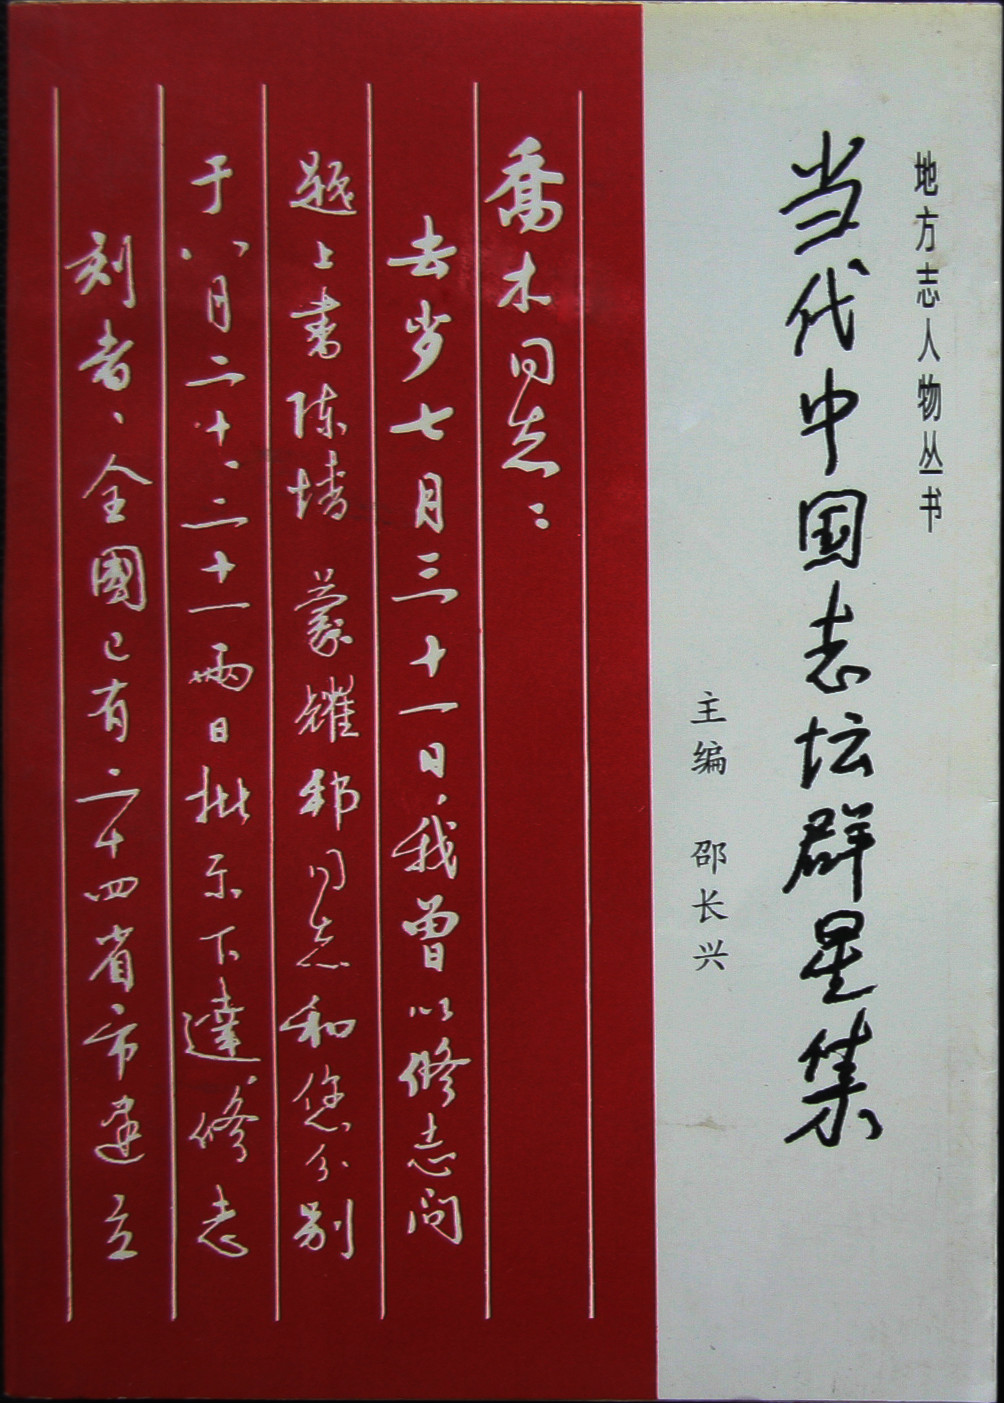 地方志人物丛书
当代中国志坛群星集
主编 邵长兴
喬木同志：
去岁七月三十一日，我曾以修志问
题上書陈情 蒙耀邦同志和您分别
于八月二十、二十一兩日批示下達修志
刻者、全國已有二十四省市建立